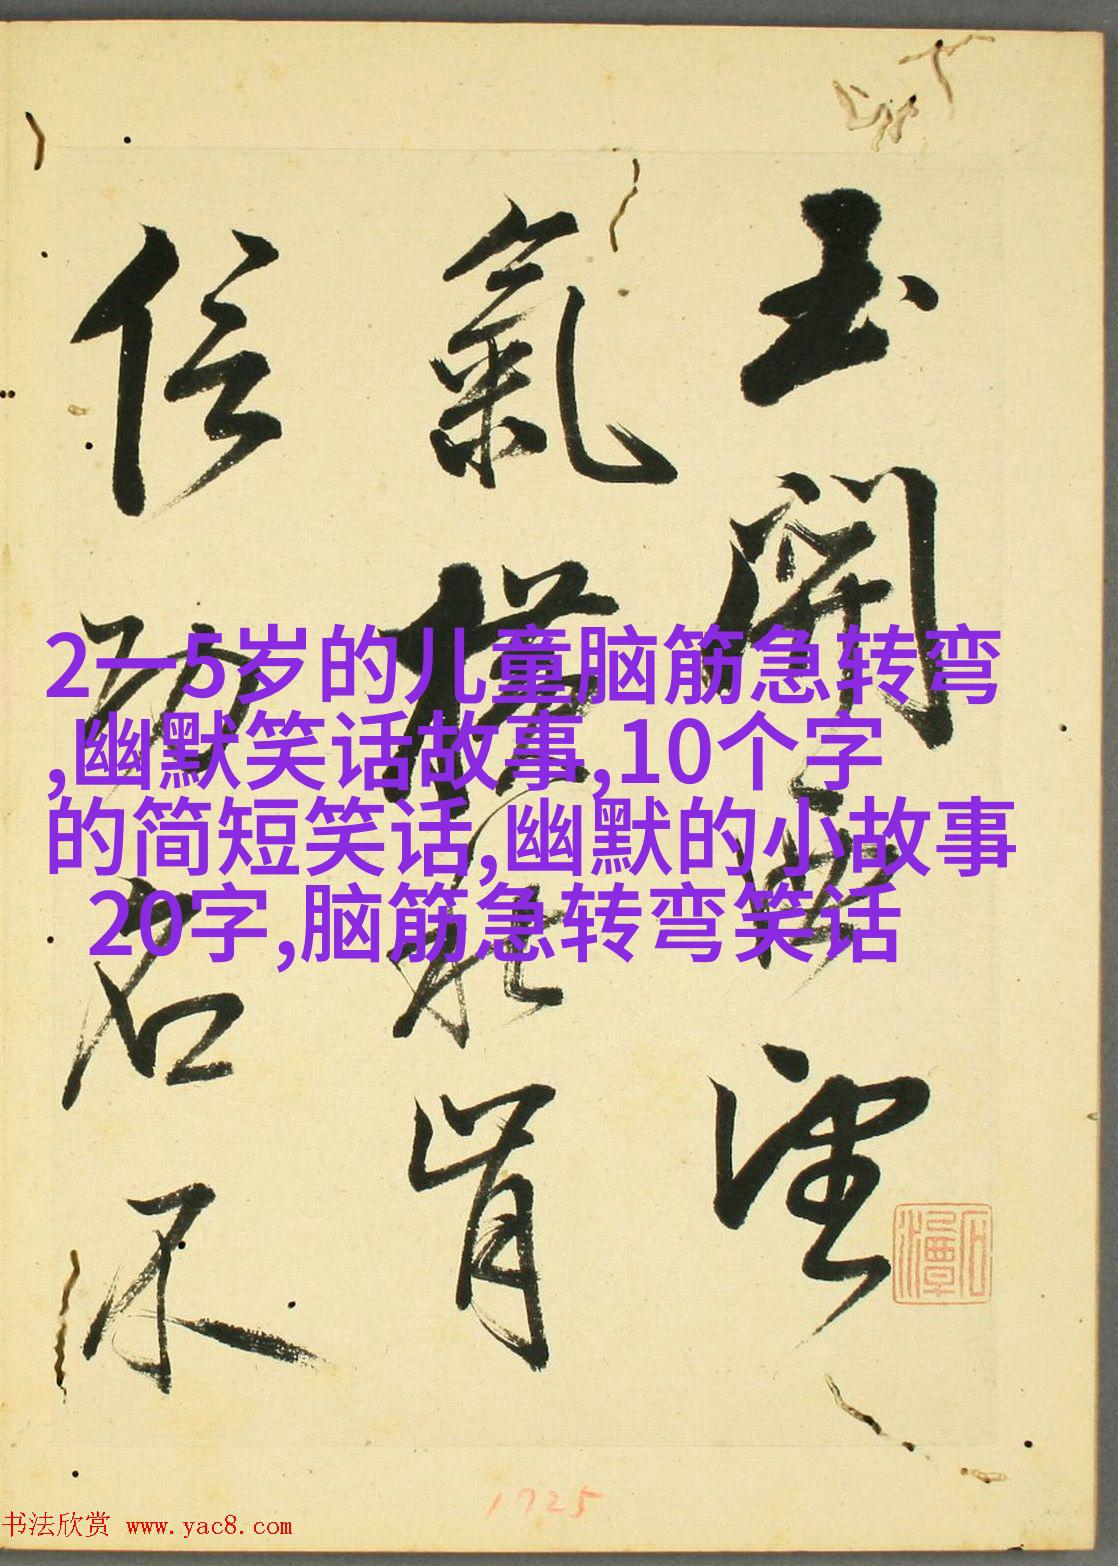 玉開
望
氣橫
肯
信
名不
2一5岁的儿童脑筋急转弯
,幽默笑话故事,10个字
的简短笑话,幽默的小故事
20字,脑筋急转弯笑话
1725
书法欣赏 www.yac8.com